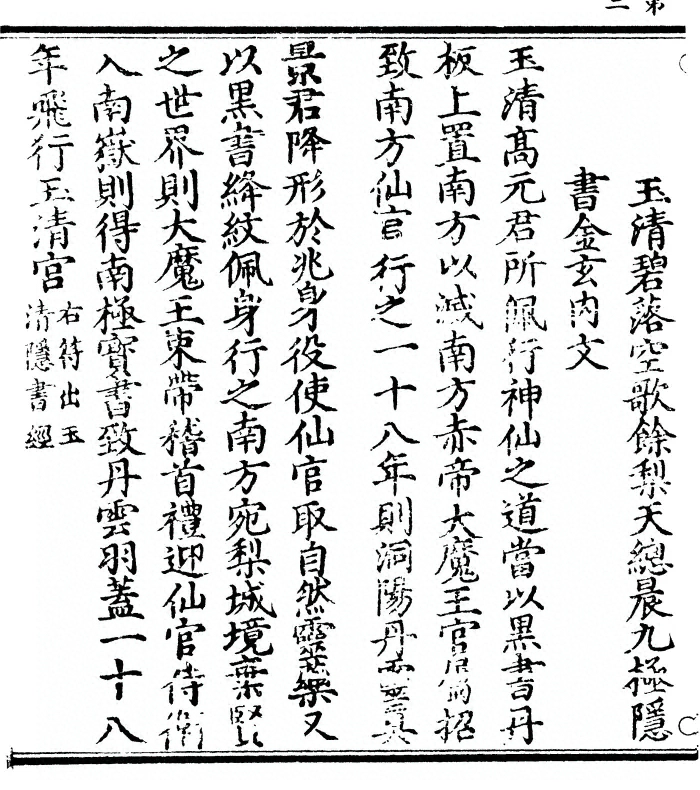 第二
玉清碧落空歌餘梨天總晨九極隱
書金玄內文
玉清高元君所佩行神仙之道當以黑書丹
板上置南方以滅南方赤帝大魔王官屬招
致南方仙官行之一十八年則洞陽丹靈真
景君降形於兆身役使仙官取自然靈藥又
以黑書絳紋佩身行之南方宛梨城境棄賢
之世界則大魔王束帶稽首禮迎仙官侍衛
入南嶽則得南極寶書致丹雲羽蓋一十八
年飛行玉清宮
右符出玉
清隱書經